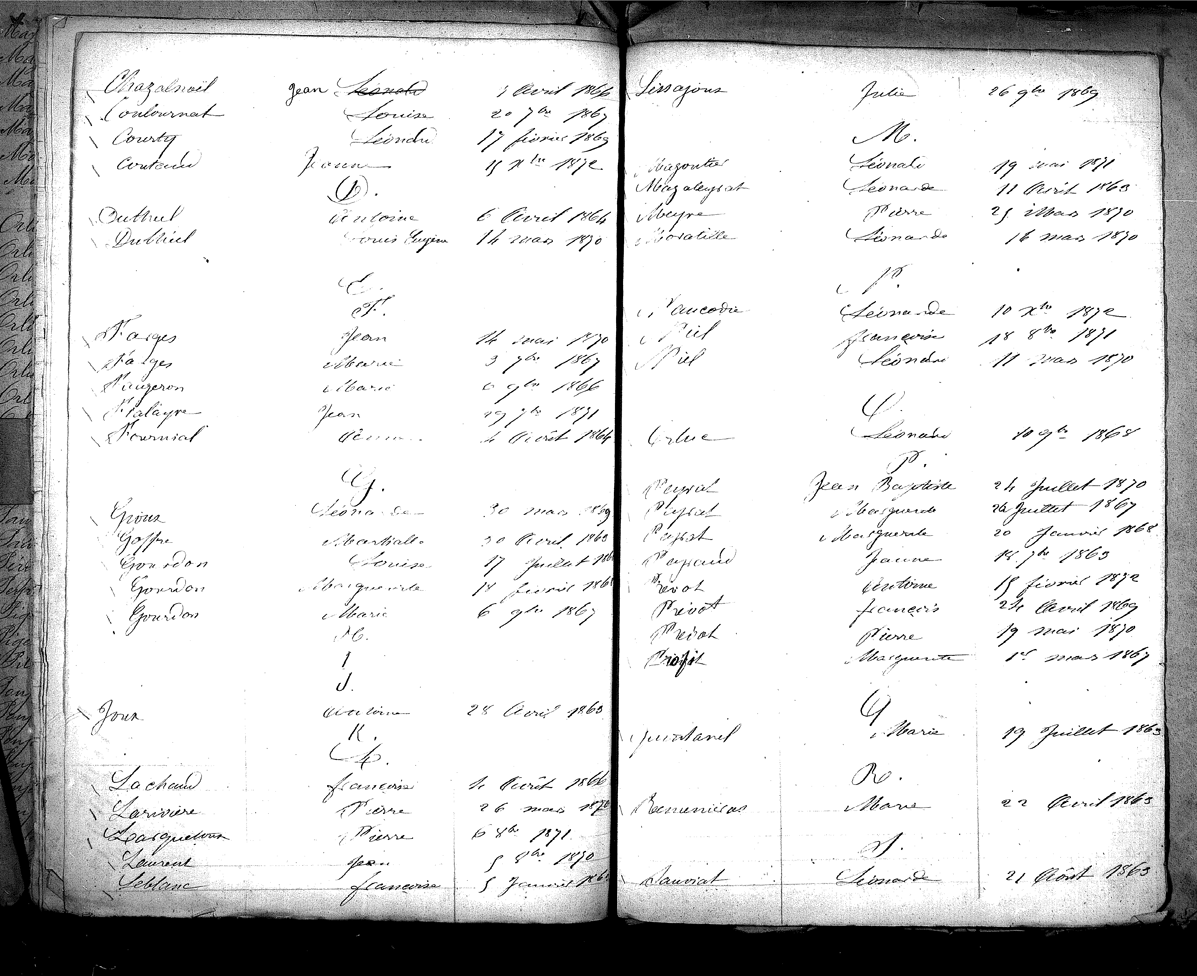 Chazalnoël Jean Léonard 3 Avril 1866
Coulournat Louise 20 7bre 1867
Courty Léonard 17 février 1869
Coutaud Jeanne 15 Xbre 1872
D.
Dutheil Antoine 6 Avril 1864
Dutheil Louis Eugène 14 mars 1870
E.
F.
Farges Jean 14 mai 1870
Farges Marie 3 7bre 1867
Faugeron Marie 6 9bre 1866
Falayre Jean 29 7bre 1871
Fournial 4 Août 1864
G.
Gioux Léonarde 30 mars 1869
Goffre Martiale 30 Avril 1863
Gourdon Louise 17 Juillet
Gourdon Marguerite 18 février
Gourdon Marie 6 9bre 1867
H.
I
J.
Joux Antoine 28 Avril 1863
K.
L.
Lachaud françoise 4 Août 1866
Larivière Pierre 26 mars 1870
Pierre 6 8bre 1871
Laurent Jean 5 8bre 1870
Leblanc françoise 5 Janvier
Lissajoux Julie 26 9bre 1869
M.
Magoutier Léonard 19 mai 1871
Mazaleyrat Léonarde 11 Avril 1863
Meyre Pierre 25 Mars 1870
Moratille Léonarde 16 mars 1870
N.
Léonarde 10 Xbre 1872
Niel françoise 18 8bre 1871
Niel Léonard 11 mars 1870
O.
Orluc Léonard 10 9bre 1868
P.
Peyrat Jean Baptiste 24 Juillet 1870
Peyrat Marguerite 24 Juillet 1867
Peyrat Marguerite 20 Janvier 1868
Peyraud Jeanne 18 7bre 1863
Prévot Antoine 15 février 1872
Prévot françois 24 Avril 1869
Prévot Pierre 19 mai 1870
Profit Marguerite 1er mars 1867
Q
Marie 19 Juillet 1863
R.
Marie 22 Avril 1863
S.
Sauviat Léonarde 21 Août 1863